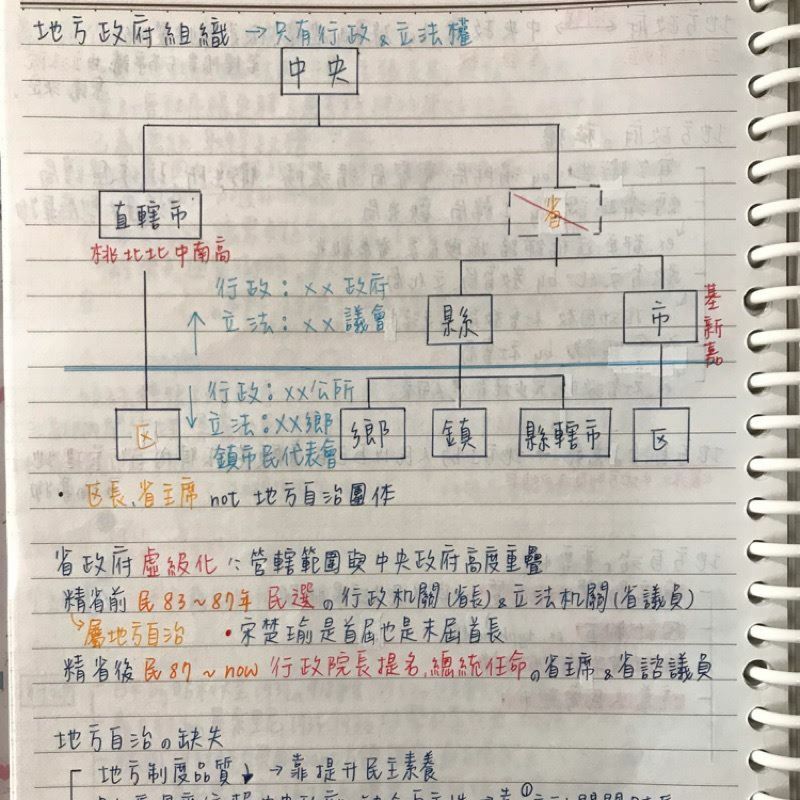 地方政府組織 → 只有行政&立法權
中央
直轄市
省
桃北北中南高
行政：xx 政府
立法：xx 議會
縣
市
基新嘉
行政：xx公所
立法：xx鄉
鎮市民代表會
区
鄉
鎮
縣轄市
区
• 区長、省主席 not 地方自治團体
省政府虛級化 ∵ 管轄範圍與中央政府高度重疊
精省前 民83~87年 民選の行政机關(省長)&立法机關(省議員)
↳屬地方自治 • 宋楚瑜是首屆也是末屆首長
精省後 民87~now 行政院長提名,總統任命の省主席&省諮議員
地方自治の缺失
地方制度品質↓ → 靠提升民主素養